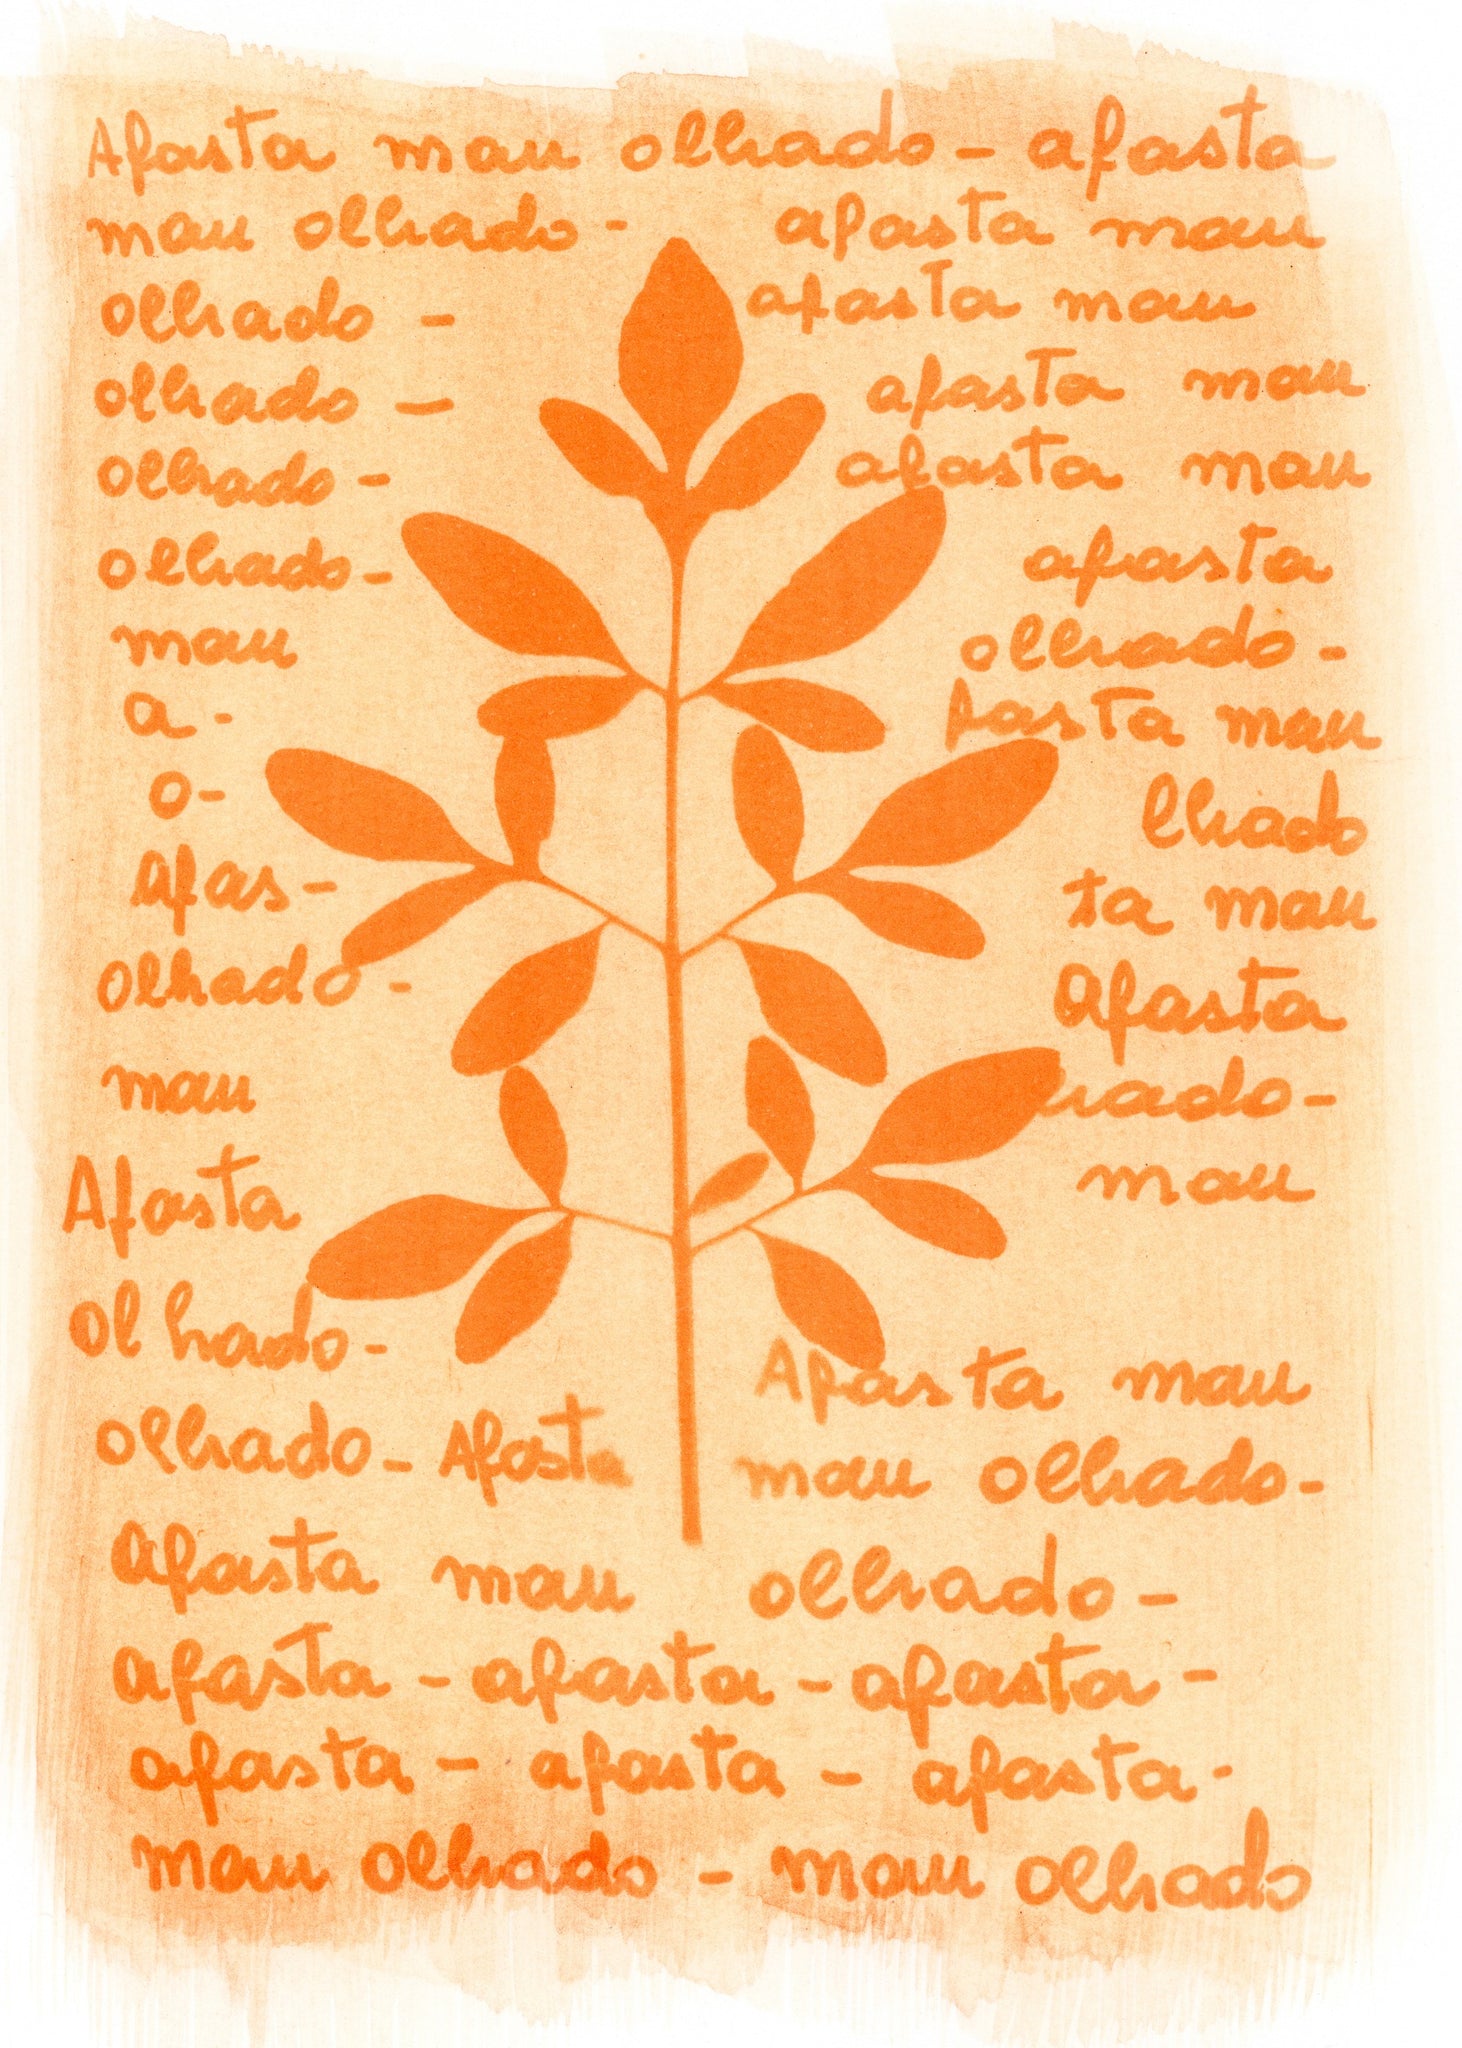 Afasta mau olhado - afasta
mau olhado - afasta mau
olhado - afasta mau
olhado - afasta mau
olhado - afasta mau
olhado - afasta
mau olhado -
a - fasta mau
o - lhado
afas - ta mau
olhado - Afasta
mau hado -
Afasta mau
Ol hado - Afasta mau
olhado - Afasta mau olhado -
Afasta mau olhado -
afasta - afasta - afasta -
afasta - afasta - afasta -
mau olhado - mau olhado